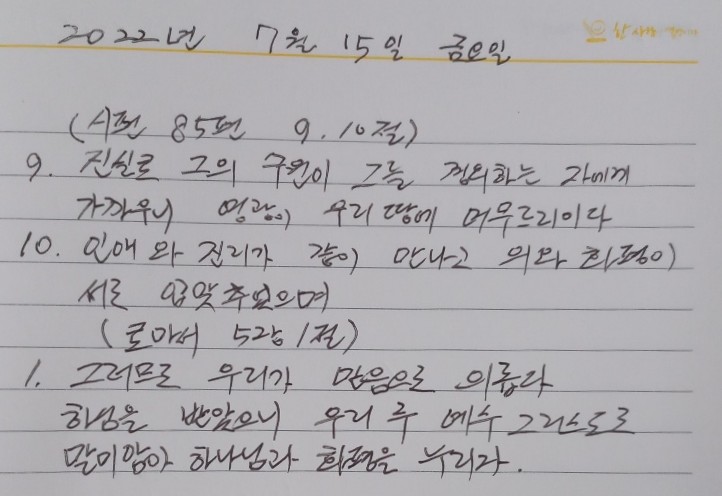 2022년 7월 15일 금요일
(시편 85편 9. 10절)
9. 진실로 그의 구원이 그를 경외하는 자에게
가까우니 영광이 우리 땅에 머무르리이다
10. 인애와 진리가 같이 만나고 의와 화평이
서로 입맞추었으며
(로마서 5장 1절)
1. 그러므로 우리가 믿음으로 의롭다
하심을 받았으니 우리 주 예수 그리스도로
말미암아 하나님과 화평을 누리라.